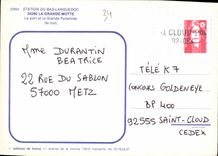 STATION DU BAS-LANGUEDOC
34280 LA GRANDE-MOTTE
Le port et la Grande Pyramide
de nuit.
24
Mme DURANTIN
BEATRICE
22 RUE DU SABLON
57000 METZ
CLOUD
02-
TÉLÉ K7
CONCOURS GOLDENEYE
BP 400
92555 SAINT-CLOUD
CEDEX